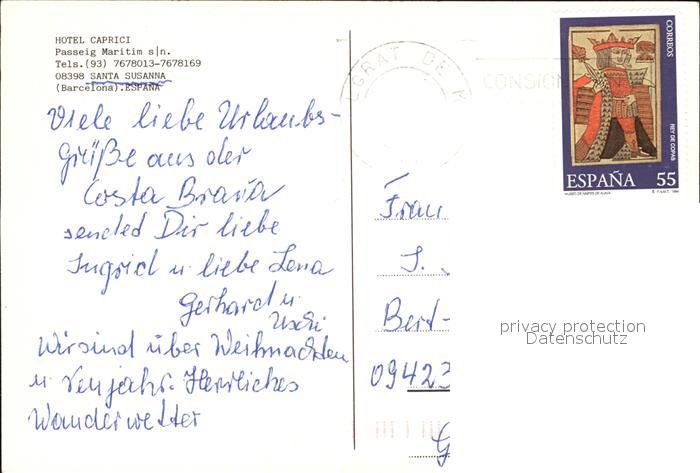 HOTEL CAPRICI
Passeig Marítim s|n.
Tels.(93) 7678013-7678169
08398 SANTA SUSANNA
(Barcelona).ESPAÑA
Viele liebe Urlaubs-
Grüße aus der
Costa Brava
sended Dir liebe
Ingrid u liebe Lena
Gerhard u
Uschi
Wir sind über Weihnachten
u Neujahr. Herrliches
Wanderwetter
GRAT DE M
CONSIGN
CORREOS
REY DE COPAS
ESPAÑA 55
MUSEO DE NAIPES DE ALAVA
Frau
I.
Bert-
09423
G
privacy protection
Datenschutz